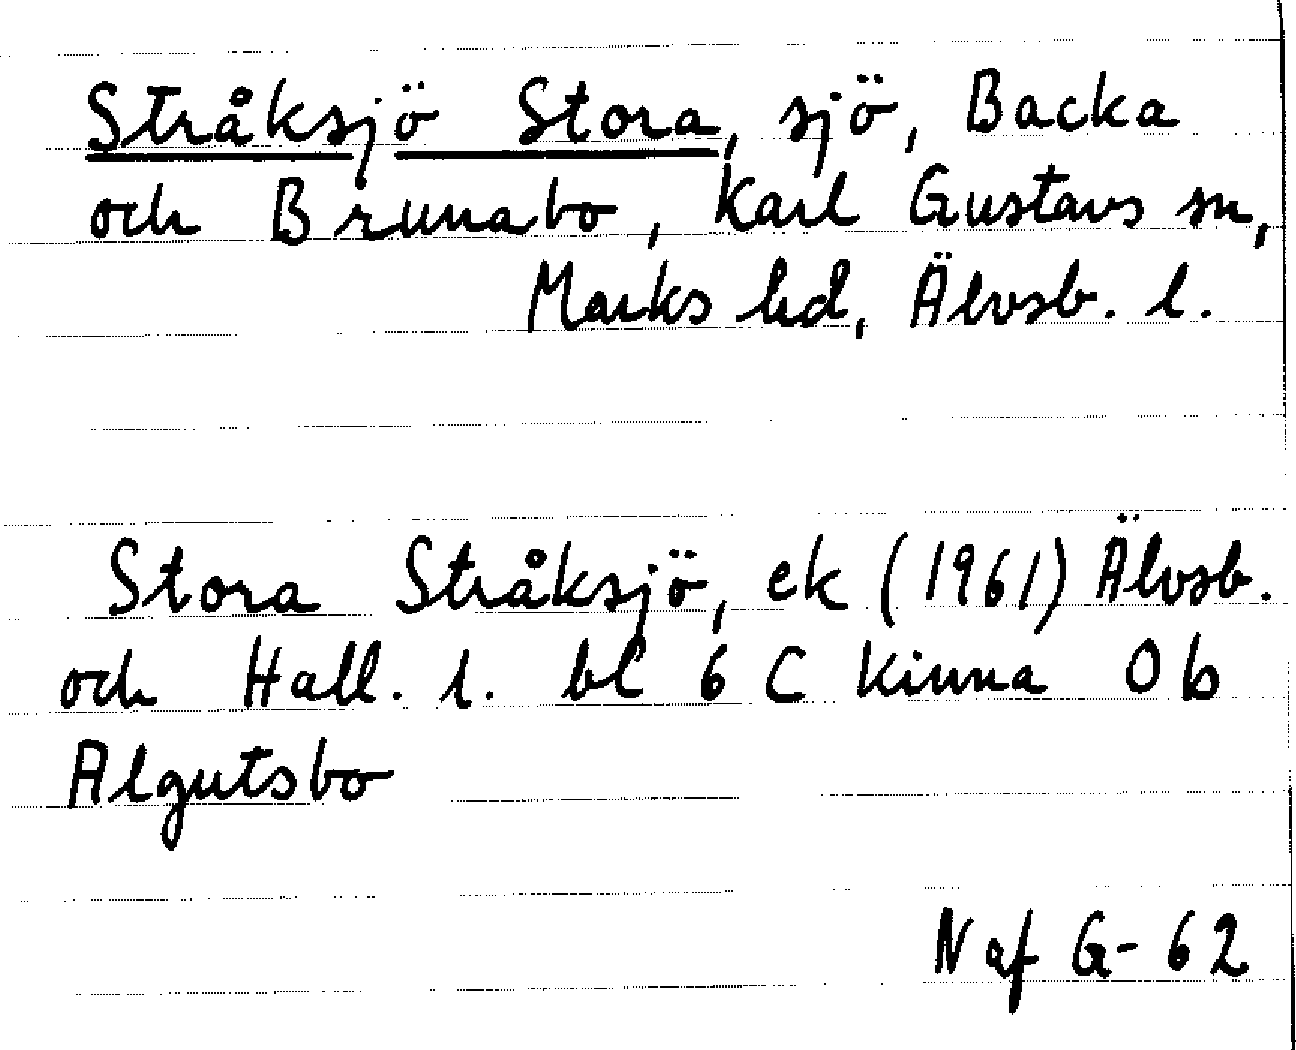 Stråksjö Stora, sjö, Backa
och Brunabo, Karl Gustavs sn,
Marks hd, Älvsb. l.
Stora Stråksjö, ek (1961) Älvsb.
och Hall. l. bl 6 C Kinna 0 b
Algutsbo
Naf G-62